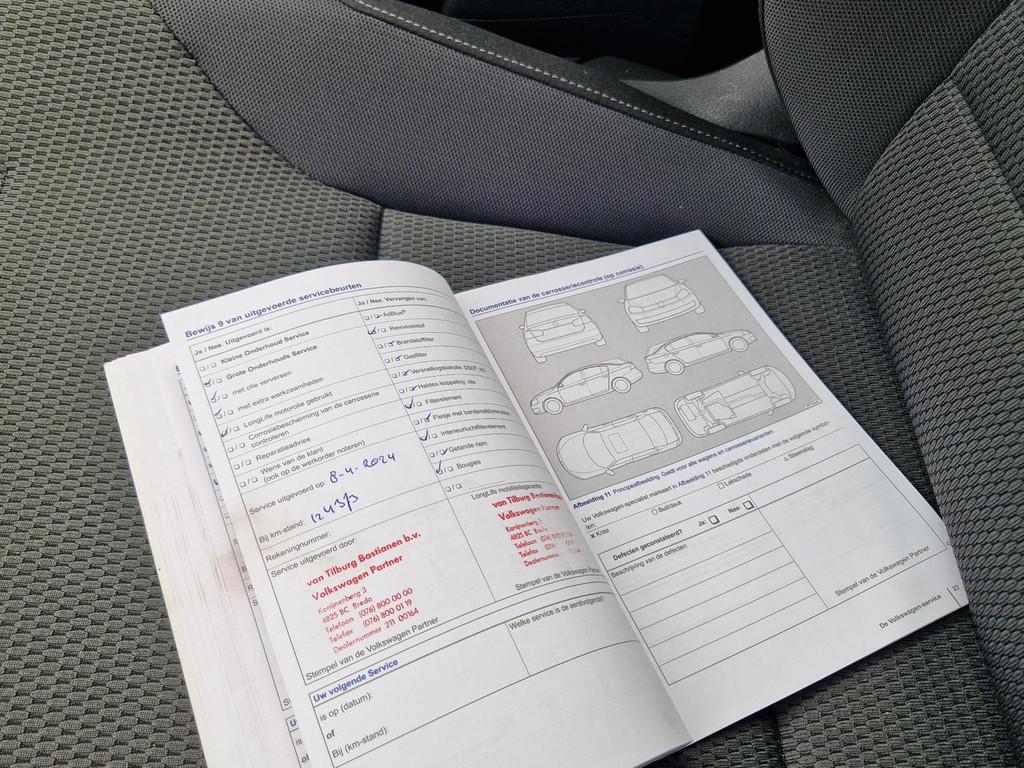 Bewijs 9 van uitgevoerde servicebeurten
Ja / Nee. Uitgevoerd is:
Kleine Onderhoud Service
Grote Onderhouds Service
met olie verversen
met extra werkzaamheden
LongLife motorolie gebruikt
Corrosiebescherming van de carrosserie
controleren
Reparatieadvies
Wens van de klant
(ook op de werkorder noteren)
Service uitgevoerd op: 8-4-2024
Bij km-stand:
Rekeningnummer:
Service uitgevoerd door:
van Tilburg Bastianen b.v.
Volkswagen Partner
Konijnenberg 3
4825 BC Breda
Telefoon (076) 800 00 00
Telefax (076) 800 01 19
Dealernummer 211 00164
Stempel van de Volkswagen Partner
Uw volgende Service
is op (datum):
of
Bij (km-stand):
Ja / Nee. Vervangen van:
AdBlue®
Remvloeistof
Brandstoffilter
Gasfilter
Versnellingsbakolie, DSG®
Haldex-koppeling, olie
Filterelement
Flesje met bandenafdichtmiddel
Interieurluchtfilterelement
Getande riem
Bougies
LongLife mobiliteitsgarantie:
van Tilburg Bastianen
Volkswagen Partner
Konijnenberg 3
4825 BC Breda
Telefoon (076)
Telefax
Dealernummer
Stempel van de Volkswagen
Welke service is de eerstvolgende?
Documentatie van de carrosseriecontrole (op corrosie)
Afbeelding 11 Principeafbeelding. Geldt voor alle wagens en carrosserievarianten.
Uw Volkswagen-specialist markeert in Afbeelding 11 beschadigde onderdelen met de volgende symbo-
len:
x Kras
O Buil/deuk
□ Lakschade
△ Steenslag
Defecten geconstateerd? Ja: Nee:
Beschrijving van de defecten:
Stempel van de Volkswagen Partner
De Volkswagen-service 23